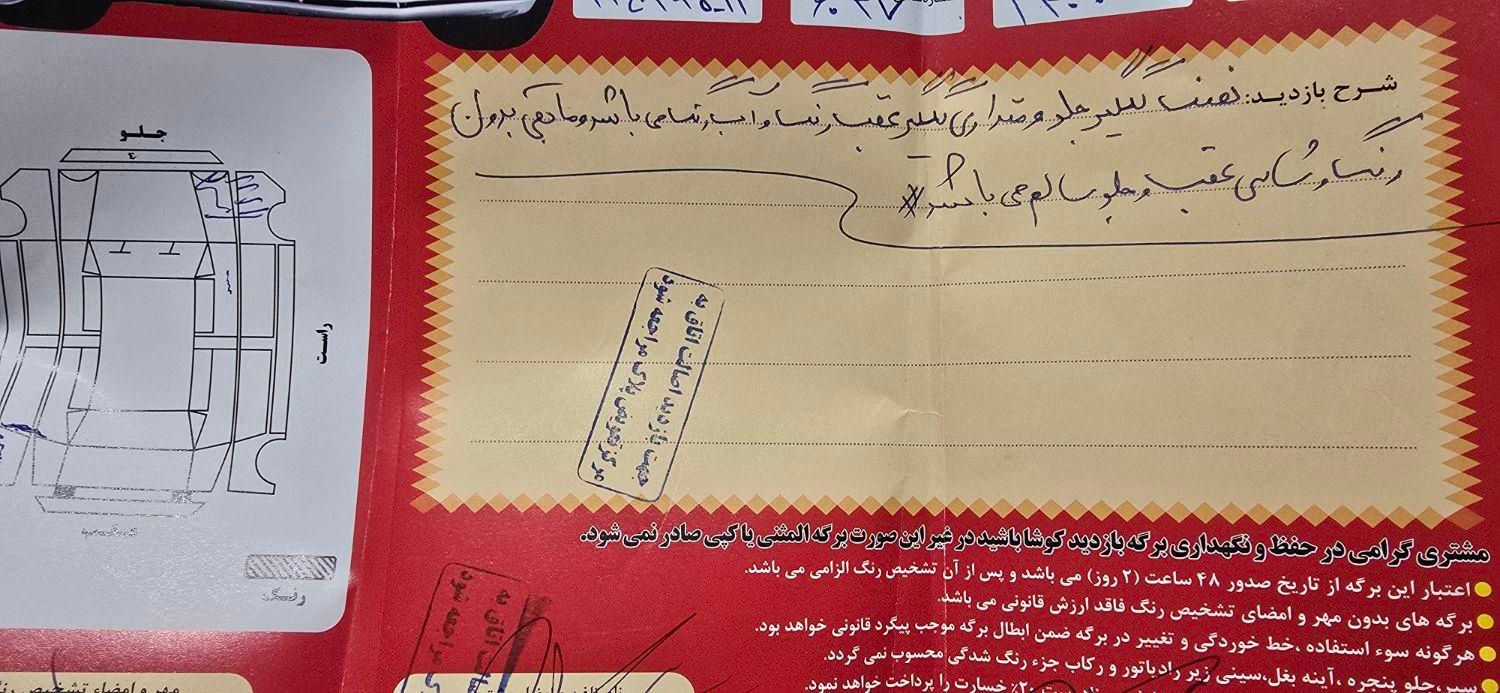 جلو
راست
عقب
رنگ
شرح بازدید: نصف گلگیر جلو و مقداری گلگیر عقب رنگ و آبرنگ می باشد و مابقی بدون
رنگ و شاسی عقب و جلو سالم می باشد
جهت بازدید اصالت اتاق به
مرکز تعویض پلاک مراجعه شود
مشتری گرامی در حفظ و نگهداری برگه بازدید کوشا باشید در غیر این صورت برگه المثنی یا کپی صادر نمی شود.
اعتبار این برگه از تاریخ صدور ۴۸ ساعت (۲ روز) می باشد و پس از آن تشخیص رنگ الزامی می باشد.
برگه های بدون مهر و امضای تشخیص رنگ فاقد ارزش قانونی می باشد.
هرگونه سوء استفاده ،خط خوردگی و تغییر در برگه ضمن ابطال برگه موجب پیگرد قانونی خواهد بود.
سپر،جلو پنجره ،آینه بغل،سینی زیر رادیاتور و رکاب جزء رنگ شدگی محسوب نمی گردد.
۲۰٪ خسارت را پرداخت خواهد نمود.
اتاق به
مراجعه شود
مهر و امضاء تشخیص رنگ